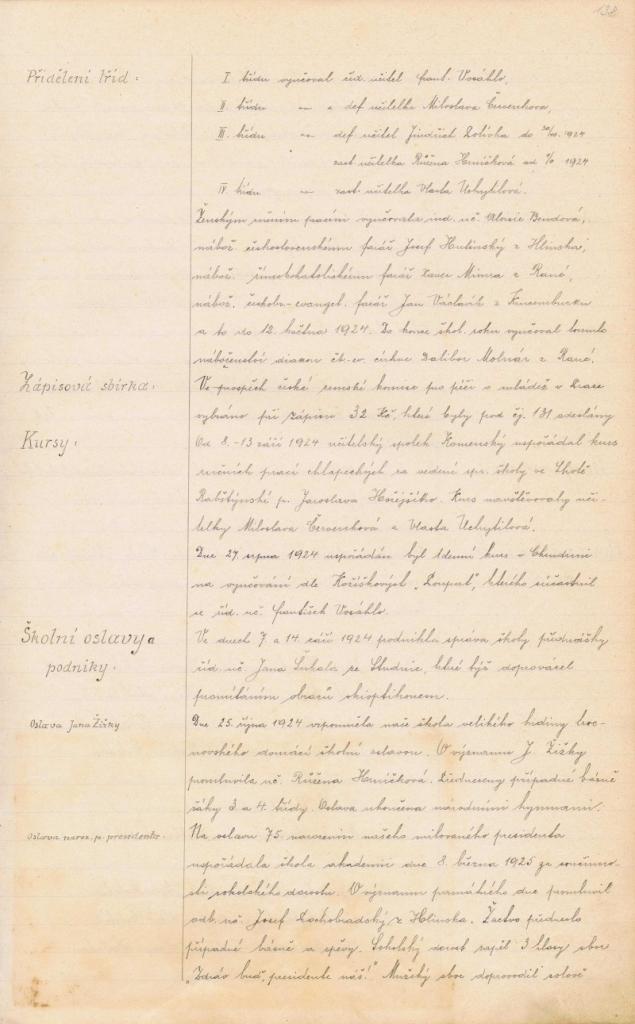 138
Přidělení tříd.
I. třídu vyučoval úd. učitel Frant. Vosáhlo,
II. třídu — „ — def. učitelka Miloslava Červenková,
III. třídu — „ — def. učitel Jindřich do 1924
zast. učitelka Růžena Hmičková od 1924
IV. třídu — „ — zast. učitelka Vlasta Uchytilová.
Ženským ručním pracím vyučovala ind. uč. Aloisie Bendová,
nábož. československému farář Josef Hutinský z Hlinska,
nábož. římskokatolickému farář Mimra z Rané,
nábož. českobr. evangel. farář Jan Václavík z Krucemburku
a to do 12. května 1924. Do konce škol. roku vyučoval tomuto
náboženství diakon čb. ev. církve Dalibor Molnár z Rané.
Zápisové sbírka.
Ve prospěch české zemské komise pro péči o mládež v Praze
vybráno při zápisu 32 Kč, které byly pod čj. 131 odeslány
Kursy.
Od 8.-13 září 1924 učitelský spolek Komenský uspořádal kurs
ručních prací chlapeckých za vedení spr. školy ve Lhotě
Rabštýnské p. Jaroslava Hořejšího. Kurs navštěvovaly uči-
telky Miloslava Červenková a Vlasta Uchytilová.
Dne 27. srpna 1924 uspořádán byl 1denní kurs v Chrudimi
na vyučování dle Kožíškových „Poupat", kterého súčastnil
se úd. uč. František Vosáhlo.
Školní oslavy a
podniky.
Ve dnech 7 a 14. září 1924 podnikla správa školy přednášky
úd. uč. Jana ze Studnic, které týž doprovázel
promítáním obrazů skioptikonem.
Oslava Jana Žižky
Dne 25. října 1924 vzpomněla naše škola velikého hrdiny troc-
novského domácí školní oslavou. O významu J. Žižky
promluvila uč. Růžena Hmičková. Předneseny případné básně
žáky 3 a 4. třídy. Oslava ukončena národními hymnami.
Oslava naroz. p. presidenta.
Na oslavu 75. narozenin našeho milovaného presidenta
uspořádala škola akademii dne 8. března 1925 za součinno-
sti sokolského dorostu. O významu památného dne promluvil
odb. uč. Josef z Hlinska. Žactvo předneslo
případné básně a zpěvy. Sokolský dorost zapěl 3 hlasý sbor
„Zdráv buď, presidente náš!" Mužský sbor doprovodil solově